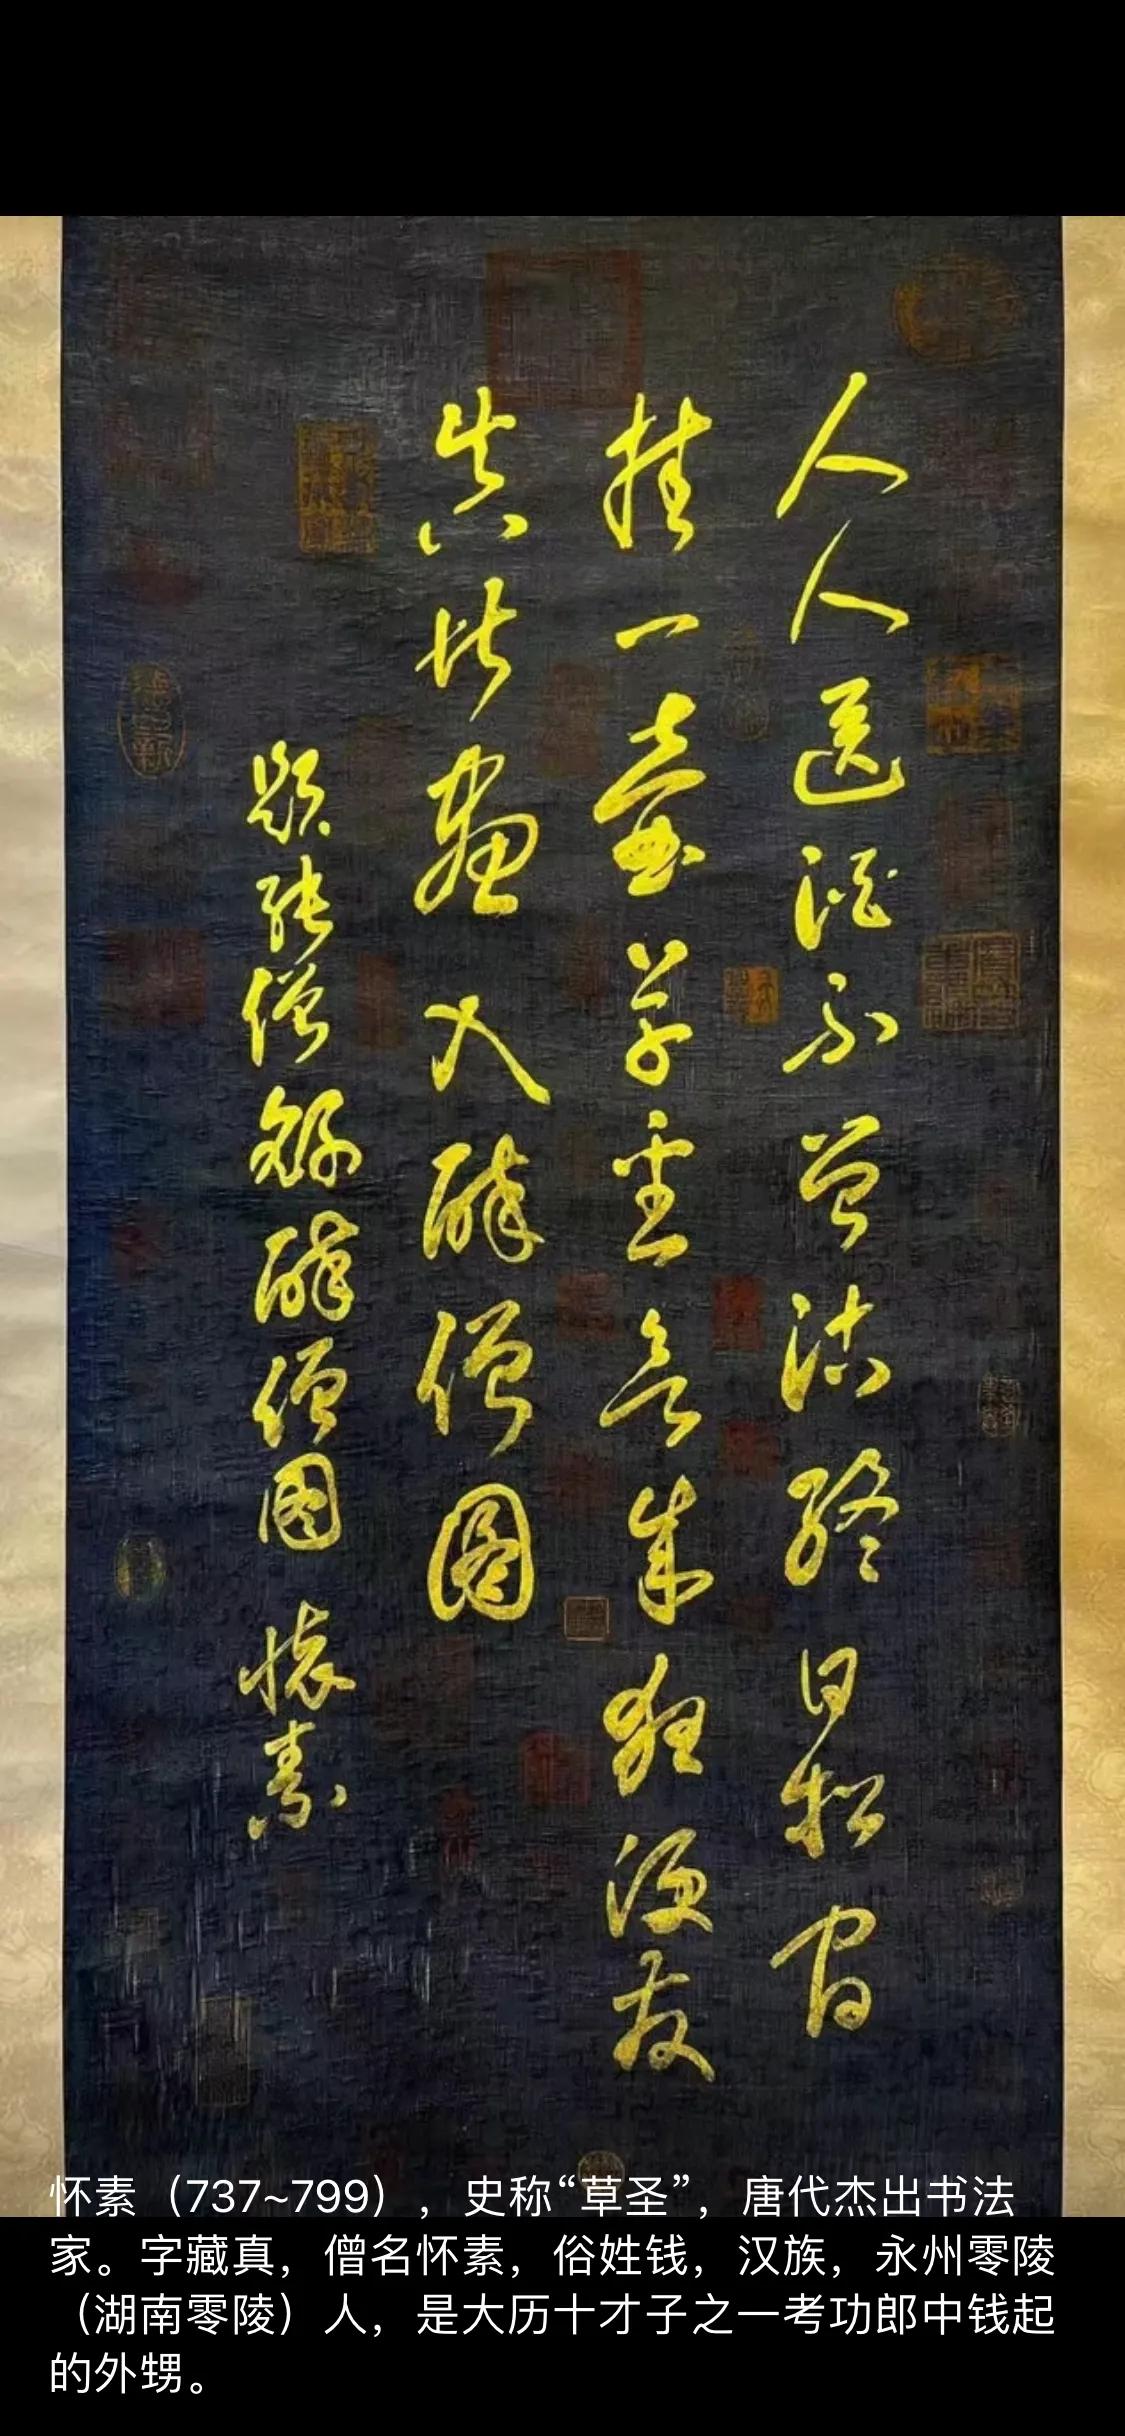 人人送酒不曾沽終日松間
挂一壺草聖欲成狂便發
真堪畫入醉僧圖
題張僧繇醉僧圖 懷素
怀素（737~799），史称“草圣”，唐代杰出书法
家。字藏真，僧名怀素，俗姓钱，汉族，永州零陵
（湖南零陵）人，是大历十才子之一考功郎中钱起
的外甥。